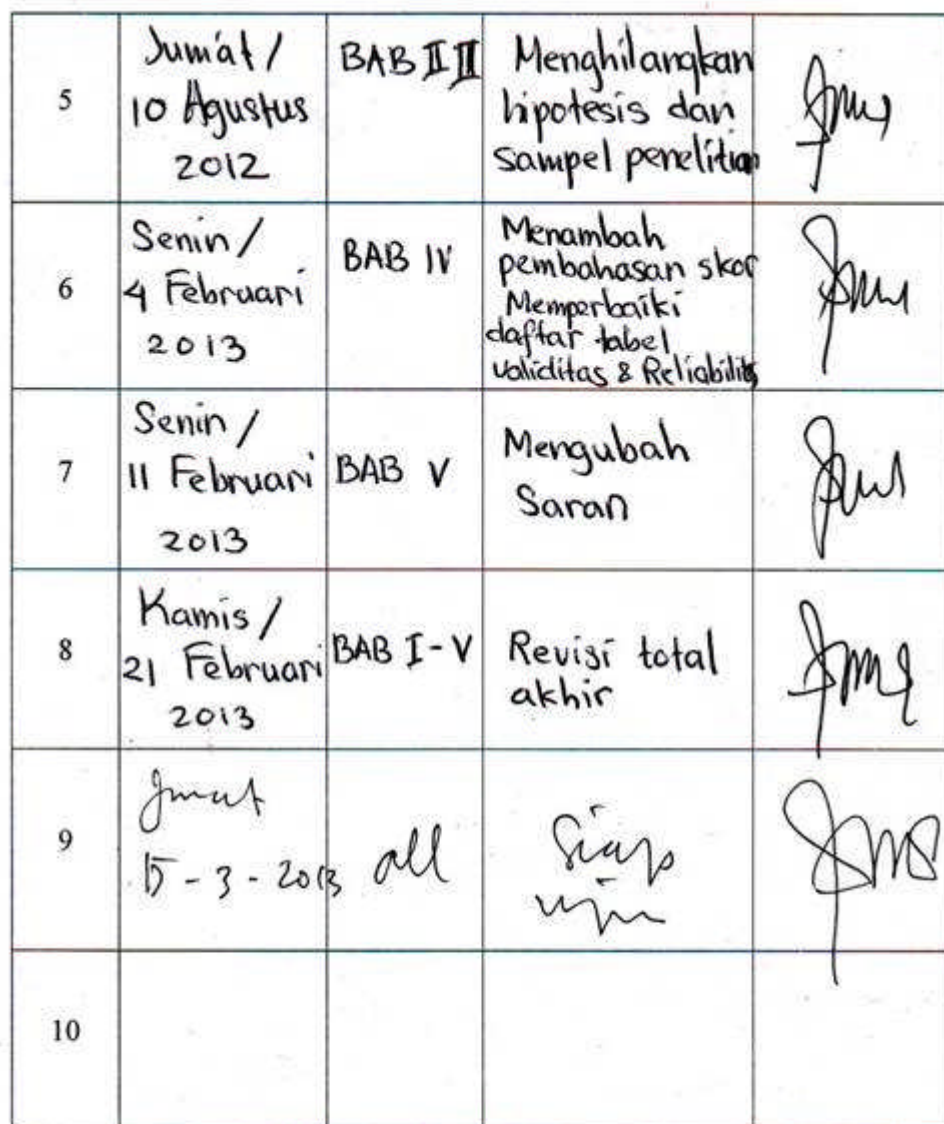 5
Jum'at /
10 Agustus
2012
BAB III
Menghilangkan
hipotesis dan
sampel penelitian
6
Senin /
4 Februari
2013
BAB IV
Menambah
pembahasan skor
Memperbaiki
daftar tabel
validitas & Reliabilitas
7
Senin /
11 Februari
2013
BAB V
Mengubah
Saran
8
Kamis /
21 Februari
2013
BAB I - V
Revisi total
akhir
9
Jumat
15 - 3 - 2013
all
Siap
uji
10